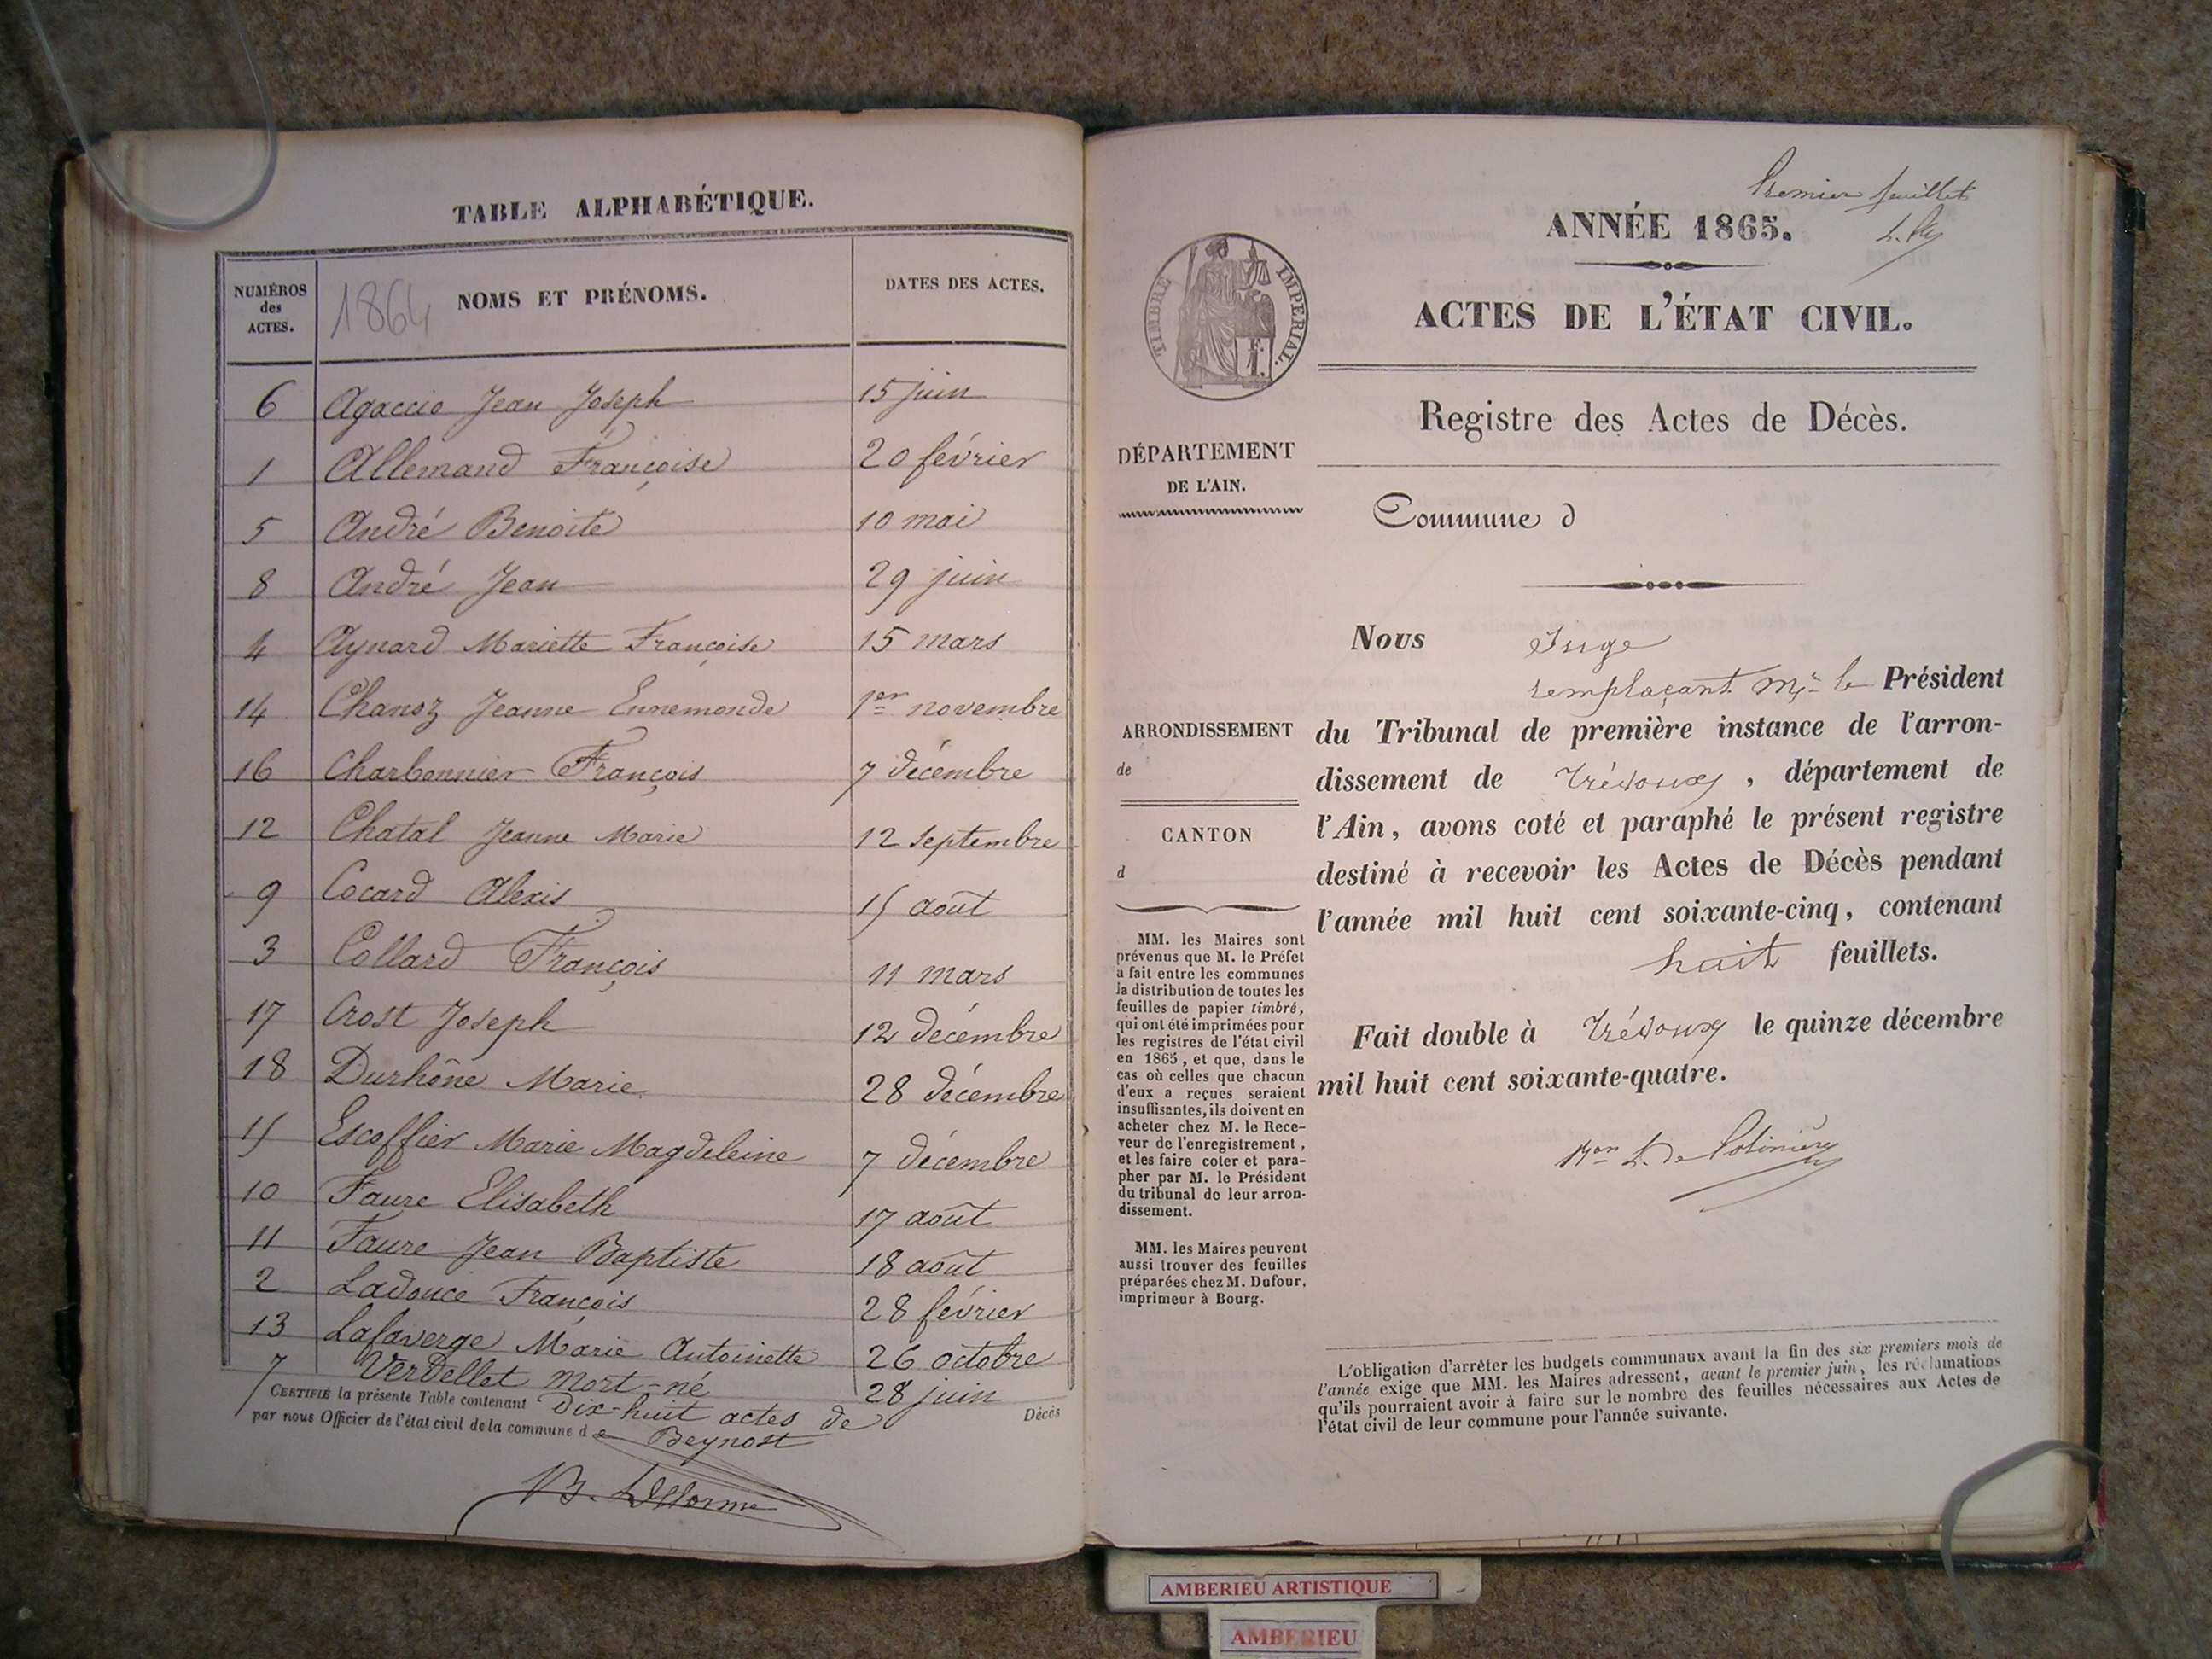 TABLE ALPHABÉTIQUE.
NUMÉROS des ACTES.
1864
NOMS ET PRÉNOMS.
DATES DES ACTES.
6 Agaccio Jean Joseph 15 juin
1 Allemand Françoise 20 février
5 André Benoite 10 mai
8 André Jean 29 juin
4 Aynard Mariette Françoise 15 mars
14 Chanoz Jeanne Ennemonde 1er novembre
16 Charbonnier François 7 décembre
12 Chatal Jeanne Marie 12 septembre
9 Cocard Alexis 15 août
3 Collard François 11 mars
17 Crost Joseph 12 décembre
18 Durhône Marie 28 décembre
15 Escoffier Marie Magdeleine 7 décembre
10 Faure Elisabeth 17 août
11 Faure Jean Baptiste 18 août
2 Ladouce François 28 février
13 Lafaverge Marie Antoinette 26 octobre
7 Verdellet mort-né 28 juin
CERTIFIÉ la présente Table contenant Dix-huit actes de Décès
par nous Officier de l'état civil de la commune de Beynost
B. Delorme
Premier feuillet
ANNÉE 1865.
ACTES DE L'ÉTAT CIVIL.
TIMBRE IMPÉRIAL.
Registre des Actes de Décès.
DÉPARTEMENT
DE L'AIN.
Commune d
ARRONDISSEMENT
de
CANTON
d
MM. les Maires sont
prévenus que M. le Préfet
a fait entre les communes
la distribution de toutes les
feuilles de papier timbré,
qui ont été imprimées pour
les registres de l'état civil
en 1865, et que, dans le
cas où celles que chacun
d'eux a reçues seraient
insuffisantes, ils doivent en
acheter chez M. le Rece-
veur de l'enregistrement,
et les faire coter et para-
pher par M. le Président
du tribunal de leur arron-
dissement.
MM. les Maires peuvent
aussi trouver des feuilles
préparées chez M. Dufour,
imprimeur à Bourg.
Nous Juge
remplaçant Mr le Président
du Tribunal de première instance de l'arron-
dissement de Trévoux, département de
l'Ain, avons coté et paraphé le présent registre
destiné à recevoir les Actes de Décès pendant
l'année mil huit cent soixante-cinq, contenant
huit feuillets.
Fait double à Trévoux le quinze décembre
mil huit cent soixante-quatre.
L'obligation d'arrêter les budgets communaux avant la fin des six premiers mois de
l'année exige que MM. les Maires adressent, avant le premier juin, les réclamations
qu'ils pourraient avoir à faire sur le nombre des feuilles nécessaires aux Actes de
l'état civil de leur commune pour l'année suivante.
AMBERIEU ARTISTIQUE
AMBERIEU